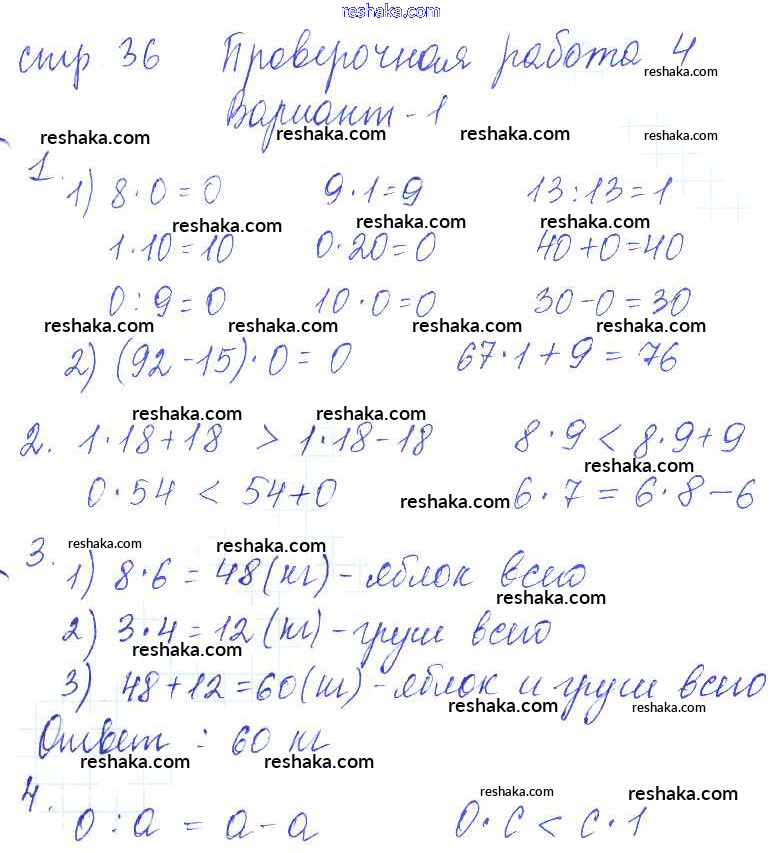 reshaka.com
стр. 36 Проверочная работа 4
reshaka.com
Вариант - 1
reshaka.com reshaka.com reshaka.com reshaka.com
1. 1) 8 · 0 = 0 9 · 1 = 9 13 : 13 = 1
reshaka.com reshaka.com reshaka.com
1 · 10 = 10 0 · 20 = 0 40 + 0 = 40
0 : 9 = 0 10 · 0 = 0 30 - 0 = 30
reshaka.com reshaka.com reshaka.com reshaka.com
2) (92 - 15) · 0 = 0 67 · 1 + 9 = 76
reshaka.com reshaka.com
2. 1 · 18 + 18 > 1 · 18 - 18 8 · 9 < 8 · 9 + 9
reshaka.com
0 · 54 < 54 + 0 6 · 7 = 6 · 8 - 6
reshaka.com reshaka.com
reshaka.com reshaka.com
3. 1) 8 · 6 = 48 (кг) - яблок всего
reshaka.com
2) 3 · 4 = 12 (кг) - груш всего
reshaka.com reshaka.com
3) 48 + 12 = 60 (кг) - яблок и груш всего
reshaka.com reshaka.com
Ответ : 60 кг
reshaka.com reshaka.com
reshaka.com reshaka.com
4. 0 : а = а - а 0 · с < с · 1
reshaka.com reshaka.com